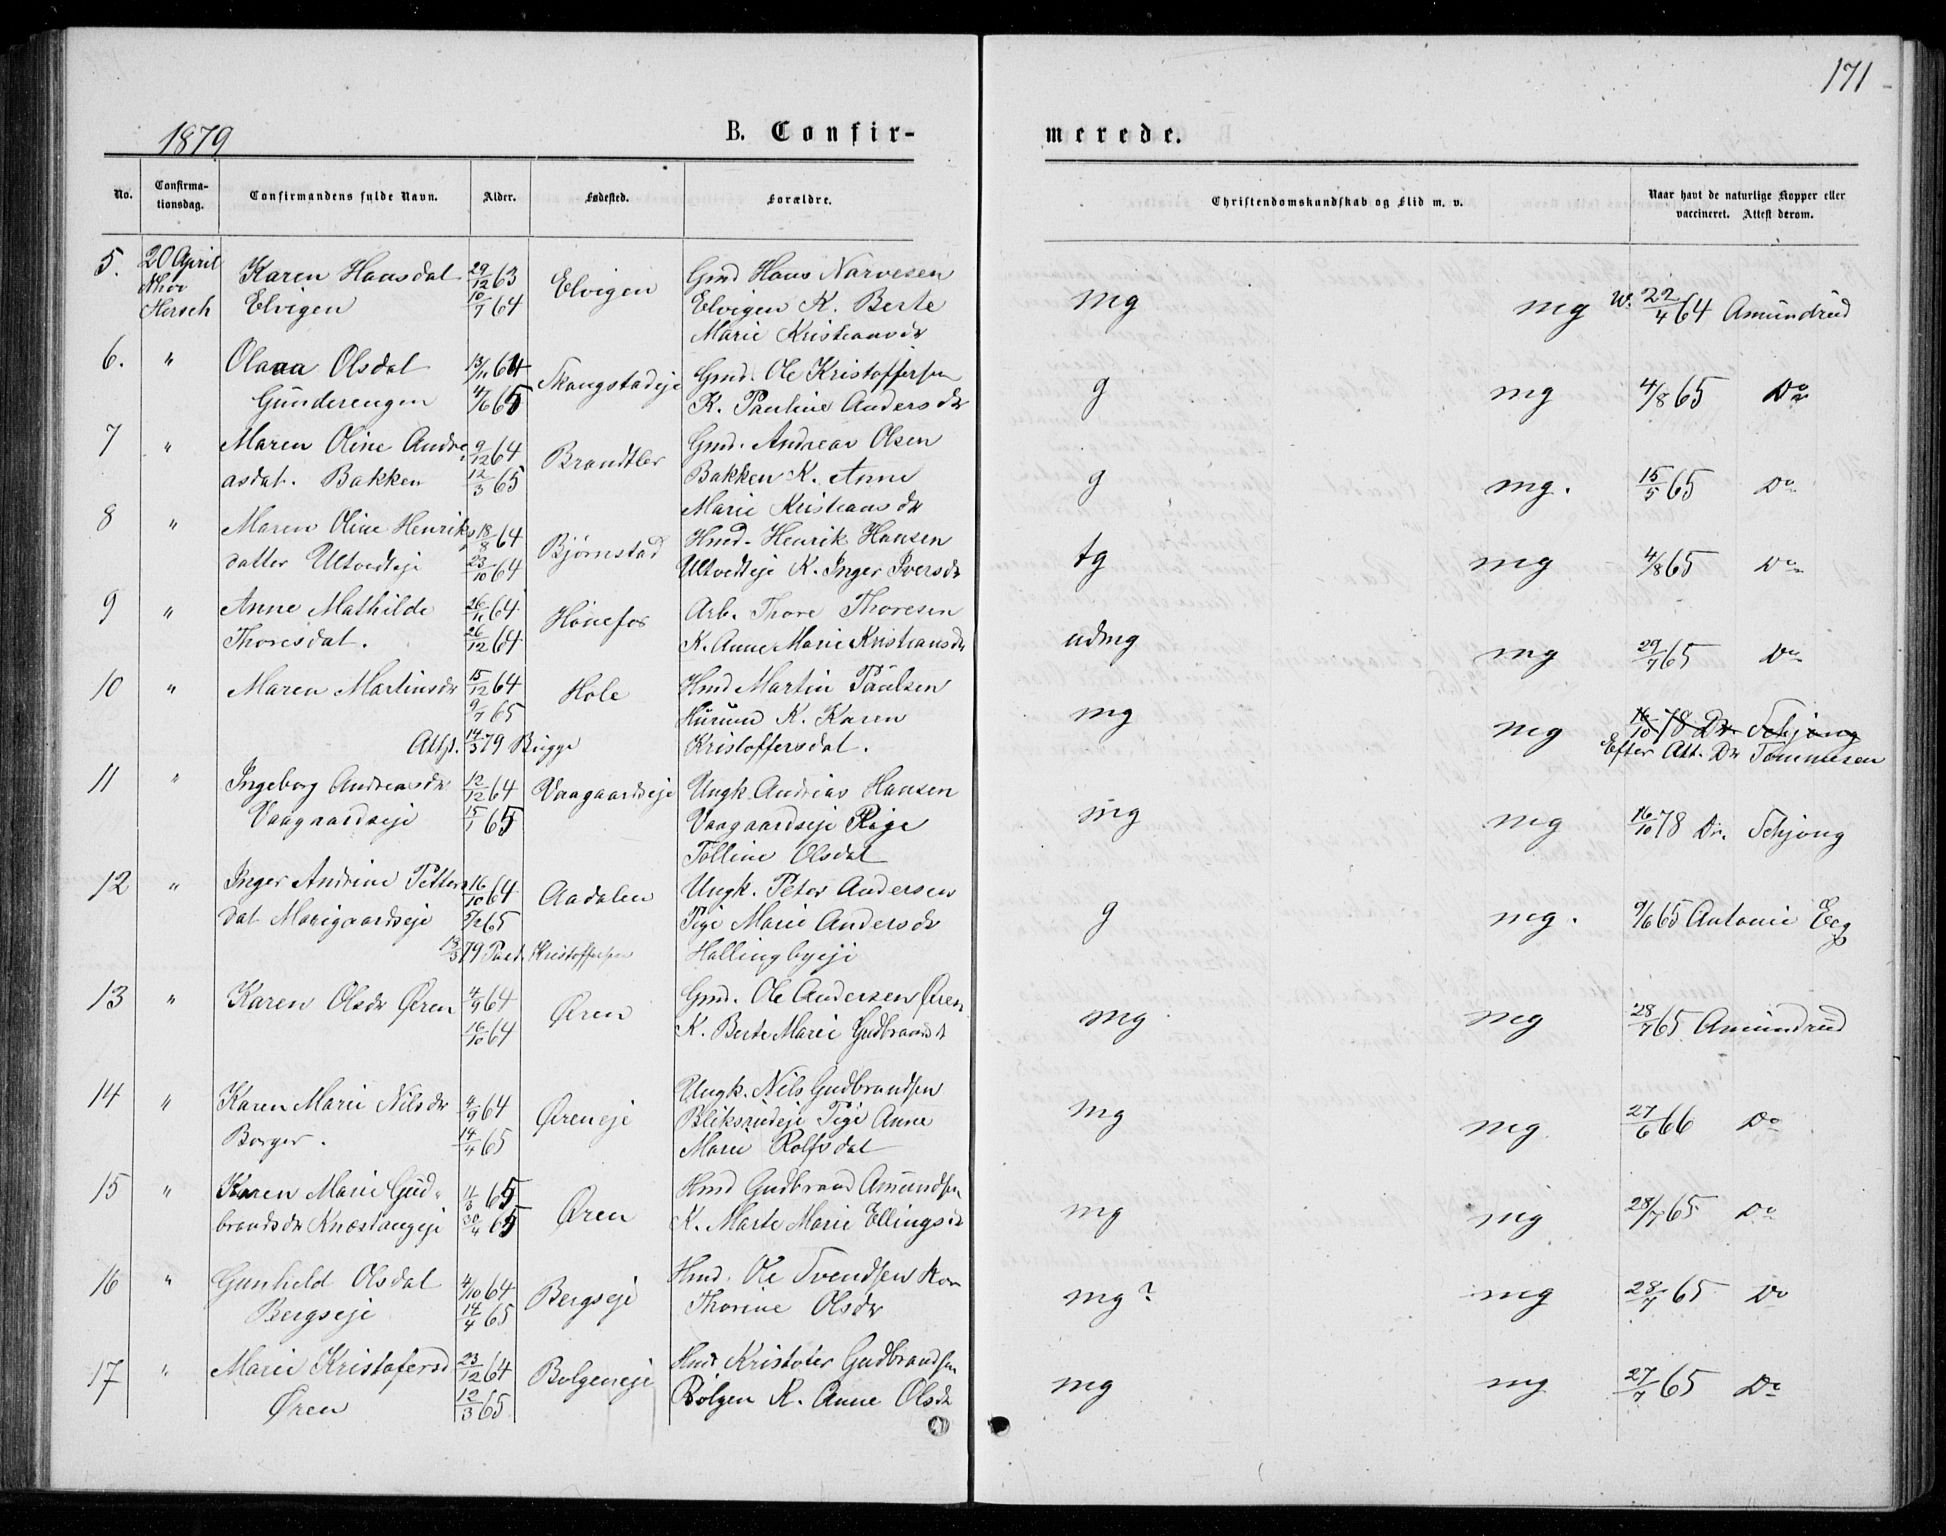 171
1879
B. Confir-
merede.
No.
Confirma-
tionsdag.
Confirmandens fulde Navn.
Alder.
Fødested.
Forældre.
Christendomskundskab og Flid m. v.
Naar havt de naturlige Kopper eller
vaccineret. Attest derom.
5. 20 April Karen Hansdat 29/12 63 Elvigen Gmd Hans Narvesen mg mg 22/4 64 Amundrud
Elvigen 10/7 64 Elvigen K. Berte
Marie Kristiansdr
6. " Olsdat 64 Gmd. Ole Kristoffersen g mg 4/8 65 Do
Gunderengen 4/6 65 K. Pauline Andersdr
7 " Maren Oline Andre- 9/12 64 Gmd. Andreas Olsen g mg. 15/5 65 Do
asdat. Bakken 12/3 65 Bakken K. Anne
Marie Kristiansdr
8 " Maren Oline Henriks 18/8 64 Bjørnstad Hmd. Henrik Hansen tg mg 4/8 65 Do
datter Ultvedteje 23/10 64 Ultvedteje K. Inger Iversdr
9 " Anne Mathilde 26/11 64 Hønefos Arb. Thore Thoresen udmg mg 29/7 65 Do
Thoresdat. 26/12 64 K. Anne Marie Kristiansdr
10 " Maren Martinsdr 15/12 64 Hole Hmd Martin Paulsen mg mg 16/10 78 Dr. Schjøng
9/7 65 K. Karen Efter Att. Dr Tømmesen
14/3 79 Bugge Kristoffersdat.
11 " Ingeborg Andreasdr 12/12 64 Vaagaardseje Ungk. Andreas Hansen mg mg 16/10 78 Dr. Schjøng
Vaagaardseje 15/1 65 Vaagaardseje Pige
Olsdat
12 " Inger Andrine Petters 16/10 64 Aadalen Ungk. Peter Andersen g mg. 9/6 65 Antonie Eeg
dat 65 Pige Marie Andersdr
13/3 79 Kristoffersen Hallingbyeje
13 " Karen Olsdr Øren 4/9 64 Øren Gmd. Ole Andersen Øren mg mg 28/7 65 Amundrud
16/10 64 K. Berte Marie Gudbrandsdr
14 " Karen Marie Nilsdr 4/9 64 Øreneje Ungk. Nils Gudbrandsen mg mg 27/6 66 Do
Borger. 14/4 65 Pige Anne
Marie Rolfsdat
15 " Karen Marie Gud- 65 Øren Hmd Gudbrand Amundsen mg mg 28/7 65 Do
brandsdr Knestangeje 30/4 65 K. Marte Marie Ellingsdr
16 " Gunhild Olsdat 4/10 64 Bergseje Hmd. Ole Svendsen Kon mg? mg 28/7 65 Do
Bergseje 14/4 65 Thorine Olsdr
17 " Marie Kristofersd 23/12 64 Bolgeneje Hmd Kristofer Gudbrandsen mg mg 27/7 65 Do
Øren 12/3 65 Bolgen K. Anne Olsdr